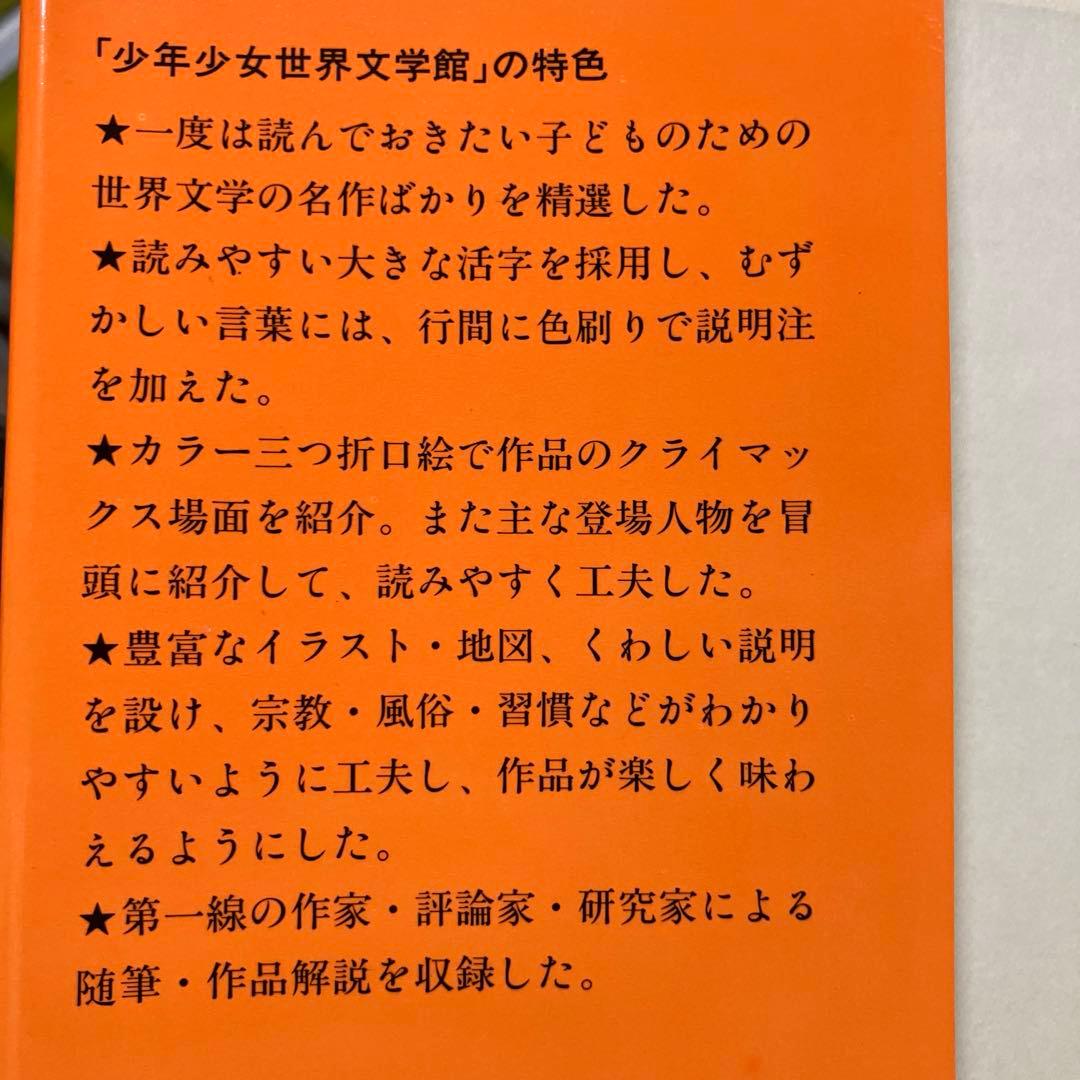 「少年少女世界文学館」の特色
★一度は読んでおきたい子どものための
世界文学の名作ばかりを精選した。
★読みやすい大きな活字を採用し、むず
かしい言葉には、行間に色刷りで説明注
を加えた。
★カラー三つ折口絵で作品のクライマッ
クス場面を紹介。また主な登場人物を冒
頭に紹介して、読みやすく工夫した。
★豊富なイラスト・地図、くわしい説明
を設け、宗教・風俗・習慣などがわかり
やすいように工夫し、作品が楽しく味わ
えるようにした。
★第一線の作家・評論家・研究家による
随筆・作品解説を収録した。